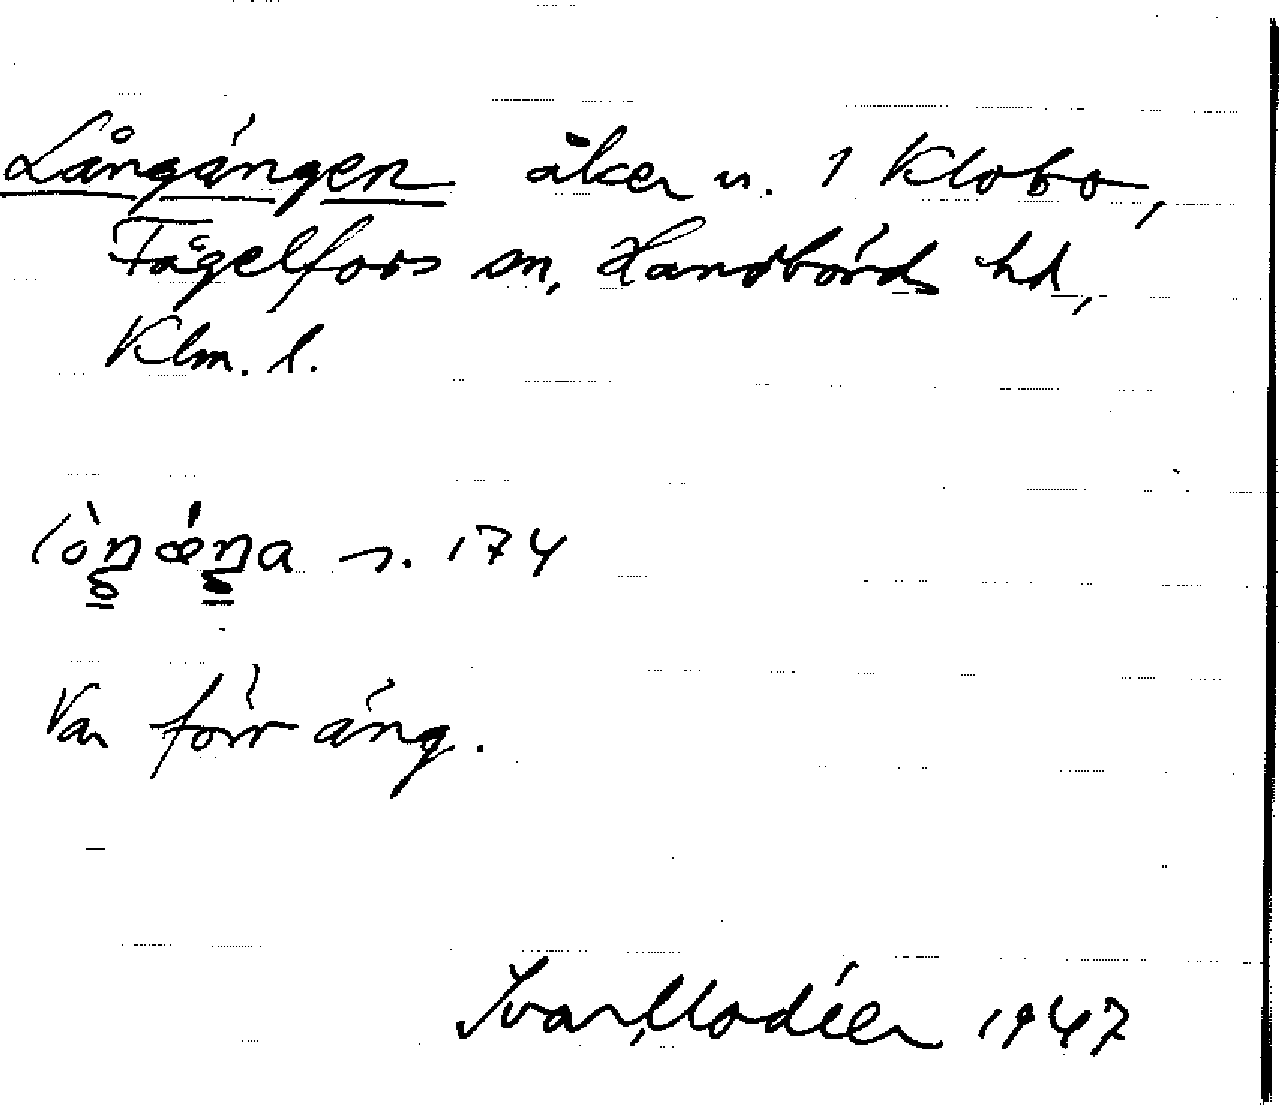 Långängen åker u. 1 Klobo,
Fågelfors sn, Handbörds hd,
Klm. l.
lòŋǽŋa n. 174
Var förr äng.
Ivar Modéer 1947